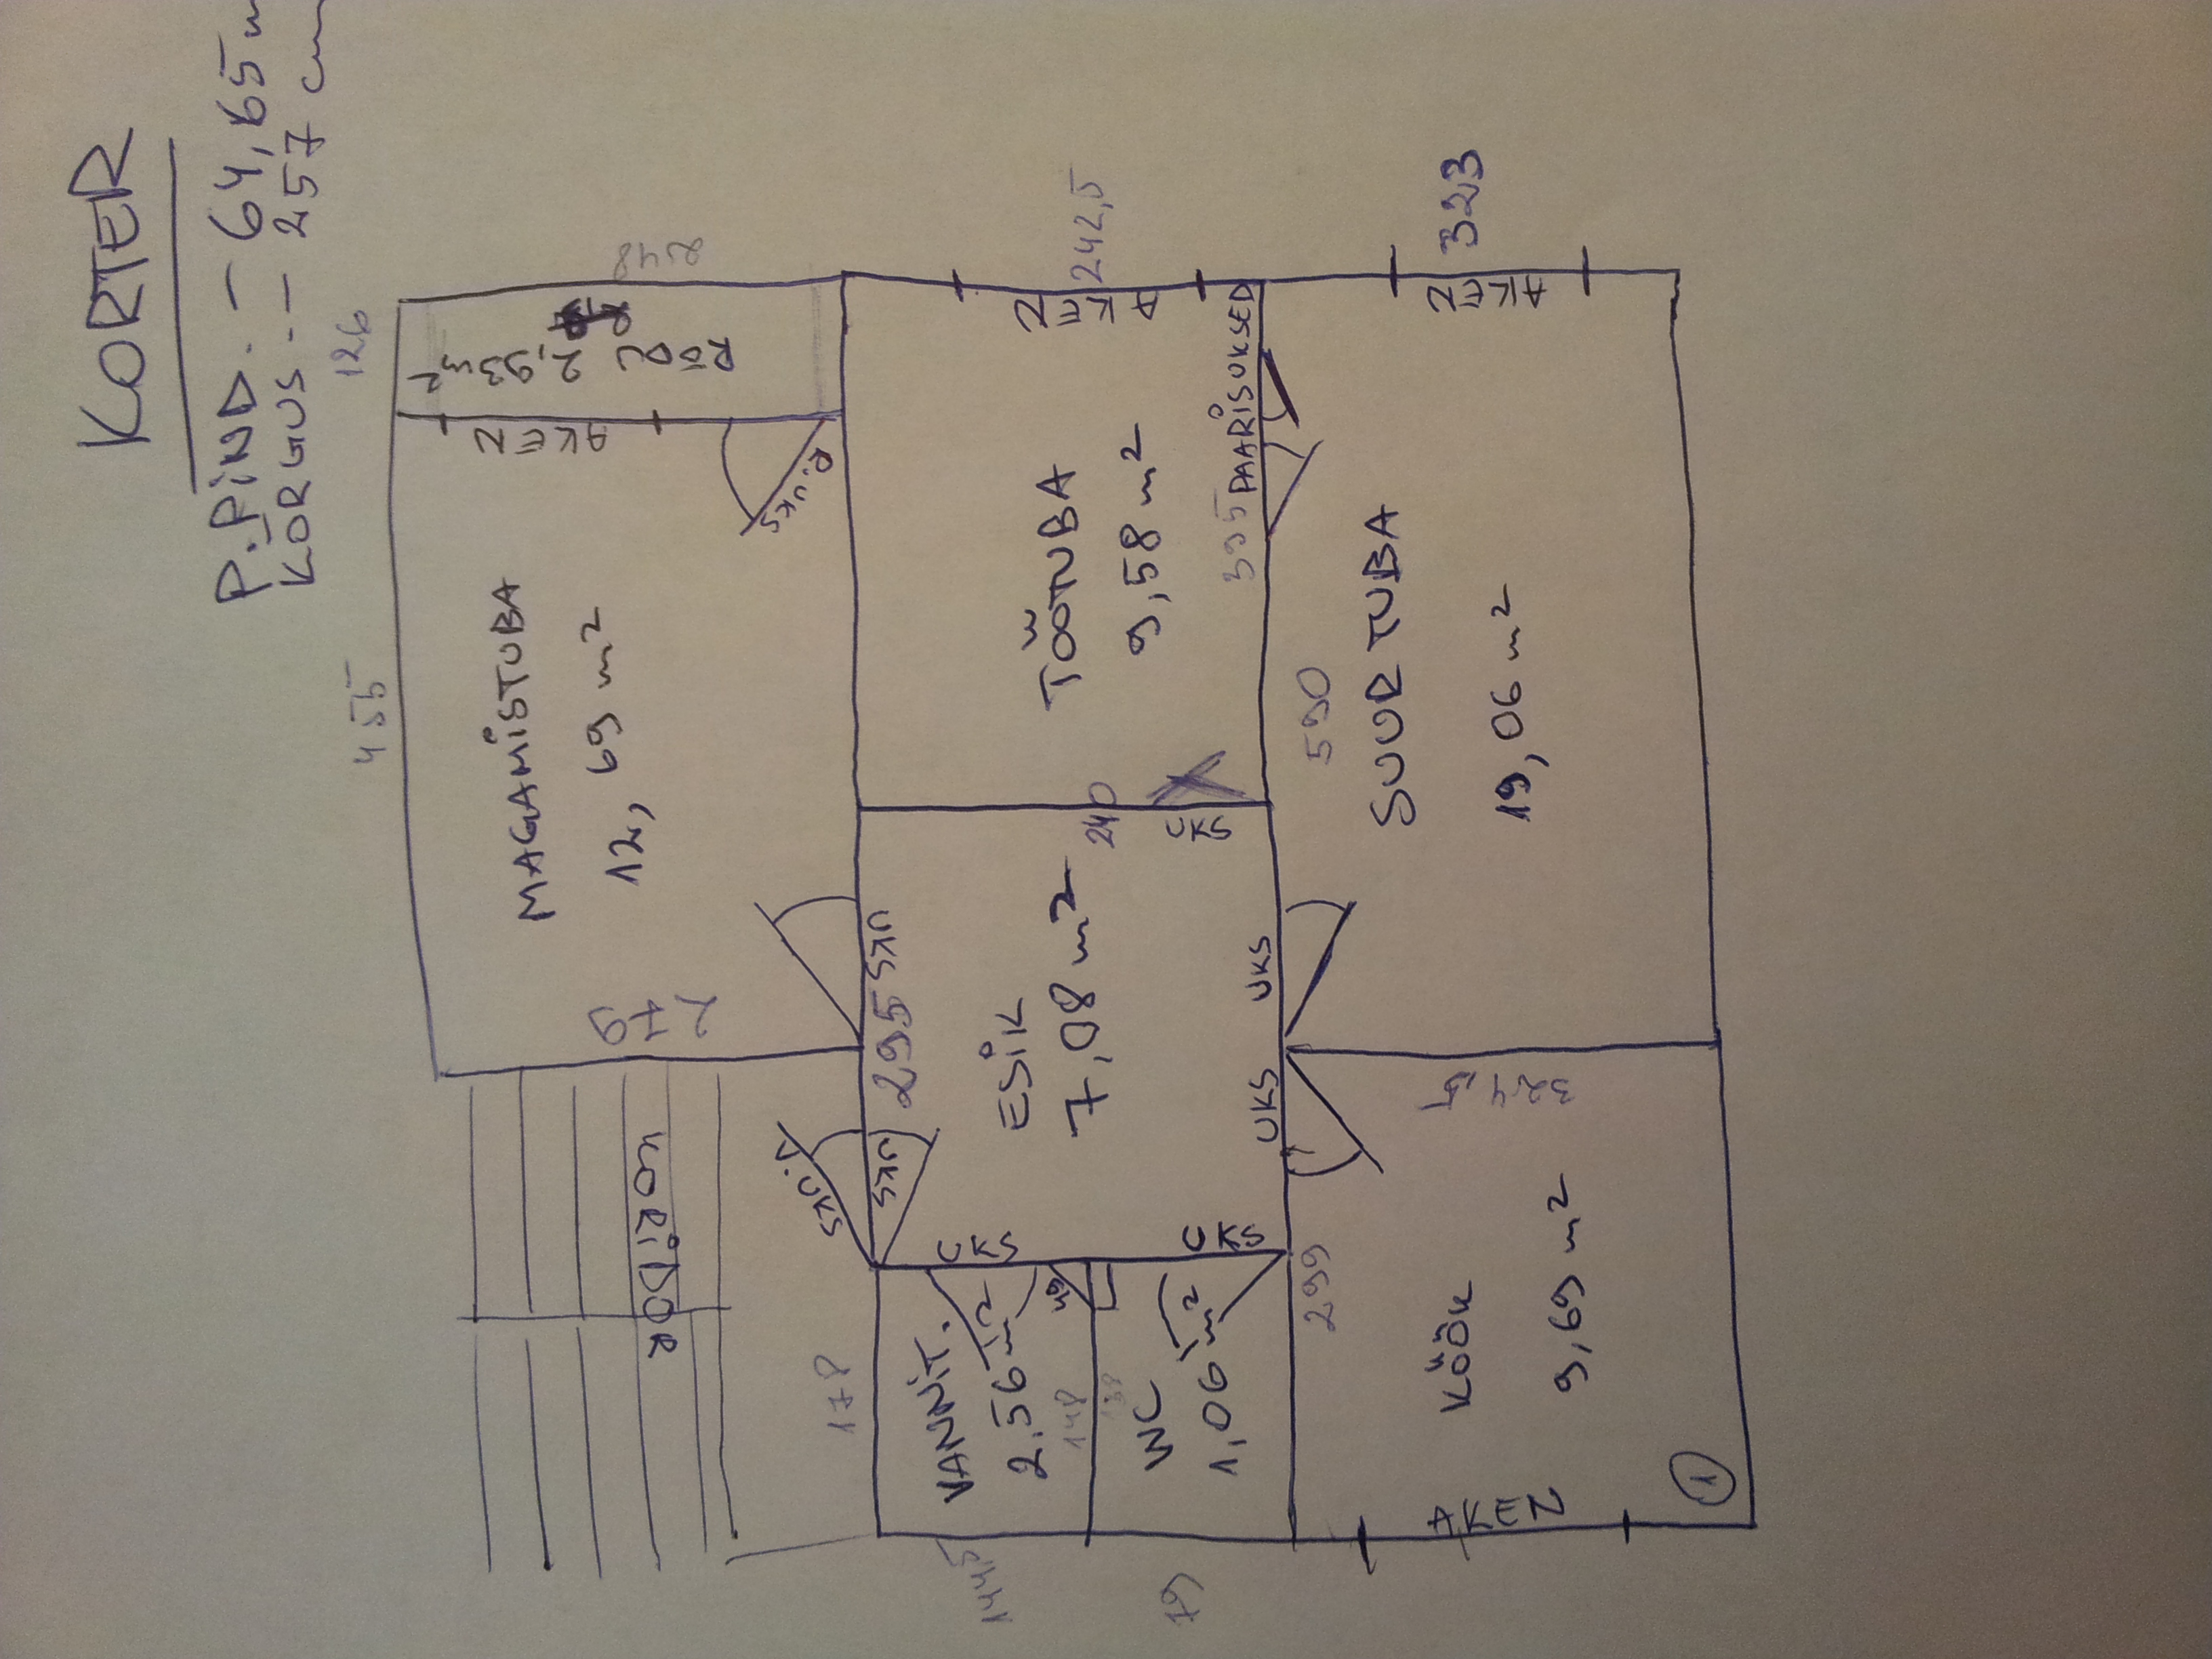 KORTER
P.PIND. – 64,65 m
KÕRGUS. – 257 cm
126
248
RÕDU
2,93 m²
AKEN
R.UKS
455
MAGAMISTUBA
12,69 m²
279
UKS
242,5
AKEN
TÖÖTUBA
9,58 m²
395
PAARISUKSED
240
UKS
323
AKEN
590
SUUR TUBA
19,06 m²
UKS
295
ESIK
7,08 m²
V.UKS
UKS
KORIDOR
178
UKS
VANNIT.
2.56 m²
148
49
144,5
UKS
WC
1,06 m²
79
UKS
299
324,5
KÖÖK
9,69 m²
AKEN
1